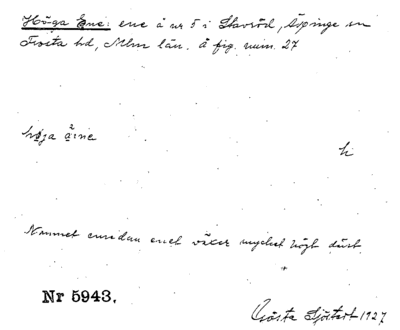 Höga Ene: ene å nr 5 i Slavröd, Äspinge sn
Frosta hd, Mlm län. å fig. num. 27
höja äne
h
Namnet emedan enet växer mycket högt därst.
Nr 5943.
Gösta Sjöstedt 1927